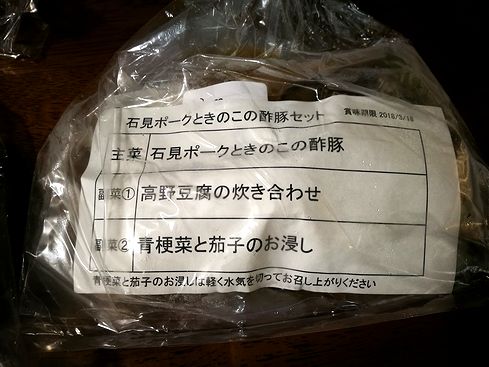 石見ポークときのこの酢豚セット 賞味期限 2018/3/18
主菜 石見ポークときのこの酢豚
副菜① 高野豆腐の炊き合わせ
副菜② 青梗菜と茄子のお浸し
青梗菜と茄子のお浸しは軽く水気を切ってお召し上がりください